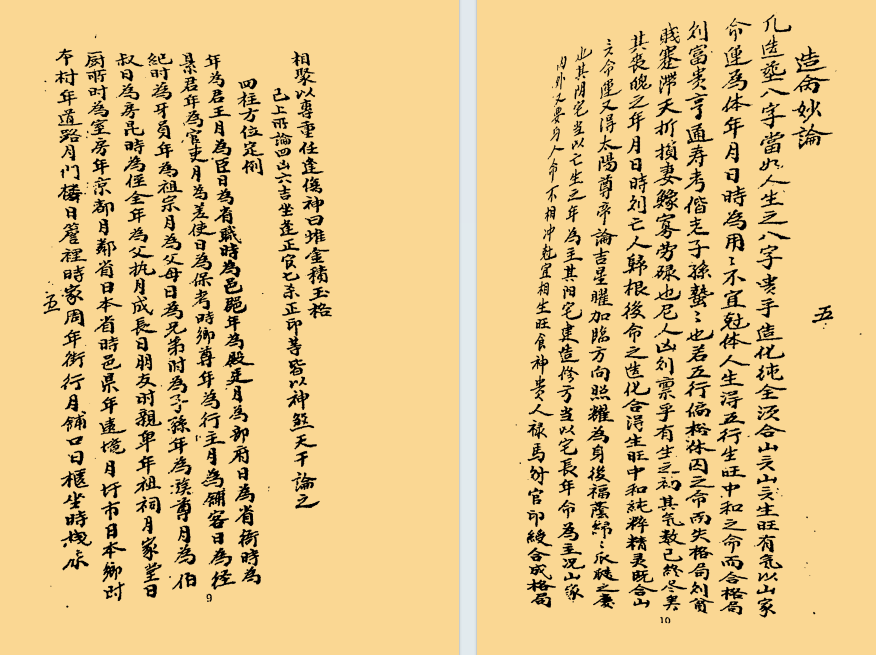 造命妙論
五
凡造塟八字當如人生之八字貴乎造化純全須合山亥山亥生旺有気以山家
命運為体年月日時為用〻不宜尅体人生得五行生旺中和之命而合格局
則富贵亨通寿考偕老子孫螽〻也若五行偏枯休囚之命而失格局則貧
賎蹇滞夭折損妻鰥寡劳碌也凡人凶則禀乎有生之初其気数已終尽矣
其喪魄之年月日時則亡人歸根後命之造化合得生旺中和純粹精灵既合山
亥命運又得太陽尊帝論吉星曜加臨方向照耀為身後福蔭綿〻瓜瓞之慶
也其阴宅当以亡生之年為主其阳宅建造修方当以宅長年命為主况山家
内外又要与人命不相冲尅宜相生旺食神貴人禄馬財官印綬合成格局
10
相聚以專重任逢傷神曰堆金積玉格
已上所論四凶六吉坐逢正官七杀正印等皆以神煞天干論之
四柱方位定例
年為君王月為臣日為有職時為邑跑年為殿廷月為部府日為省衙時為
県君年為官吏月為差使日為保考時鄉尊年為行主月為舖客日為經
紀時為牙員年為祖宗月為父母日為兄弟时為子孫年為族尊月為伯
叔日為房昆時為侄全年為父执月成長日朋友时親卑年祖祠月家堂日
厨所时為室房年京都月鄰省日本省時邑県年遠境月圩市日本鄉时
本村年道路月門樓日簷裡時家周年街行月舖口日櫃坐時栈床
五
9